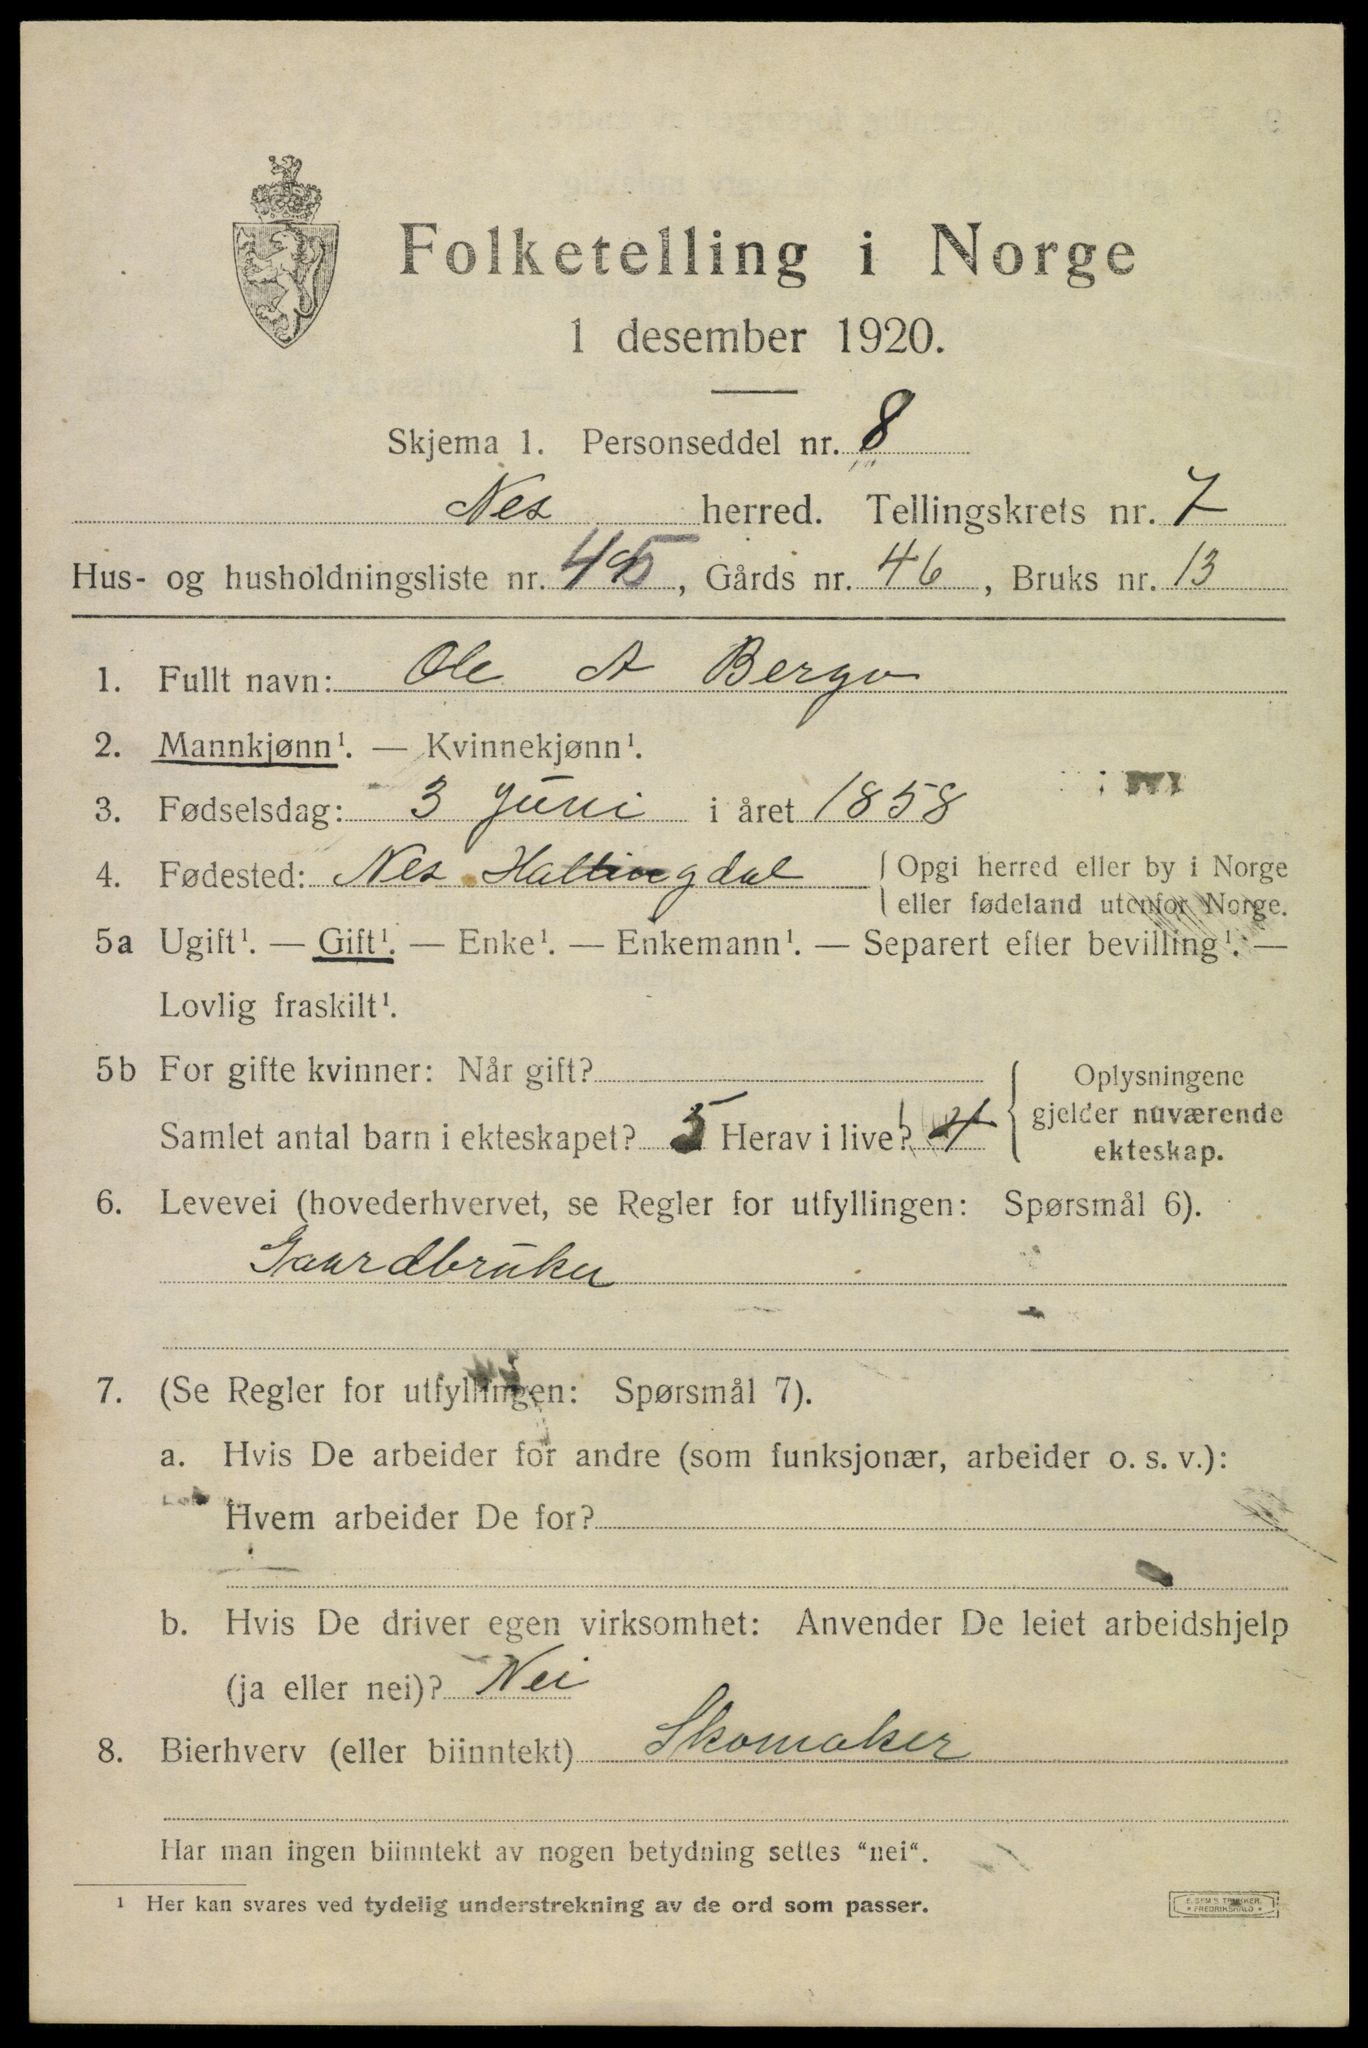 Folketelling i Norge
1 desember 1920.
Skjema 1. Personseddel nr. 8
Nes herred. Tellingskrets nr. 7
Hus- og husholdningsliste nr. 45, Gårds nr. 46, Bruks nr. 13
1. Fullt navn: Ole A Bergo
2. Mannkjønn¹. — Kvinnekjønn¹.
3. Fødselsdag: 3 Juni i året 1858
4. Fødested: Nes Hallingdal { Opgi herred eller by i Norge
eller fødeland utenfor Norge.
5a Ugift¹. — Gift¹. — Enke¹. — Enkemann¹. — Separert efter bevilling¹. —
Lovlig fraskilt¹.
5b For gifte kvinner: Når gift?
Samlet antal barn i ekteskapet? 5 Herav i live? 4
{ Oplysningene
gjelder nuværende
ekteskap.
6. Levevei (hovederhvervet, se Regler for utfyllingen: Spørsmål 6).
Gaardbruker
7. (Se Regler for utfyllingen: Spørsmål 7).
a. Hvis De arbeider for andre (som funksjonær, arbeider o. s. v.):
Hvem arbeider De for?
b. Hvis De driver egen virksomhet: Anvender De leiet arbeidshjelp
(ja eller nei)? Nei
8. Bierhverv (eller biinntekt) Skomaker
Har man ingen biinntekt av nogen betydning settes “nei“.
¹ Her kan svares ved tydelig understrekning av de ord som passer.
E. SEM'S TRYKKERI,
FREDRIKSHALD